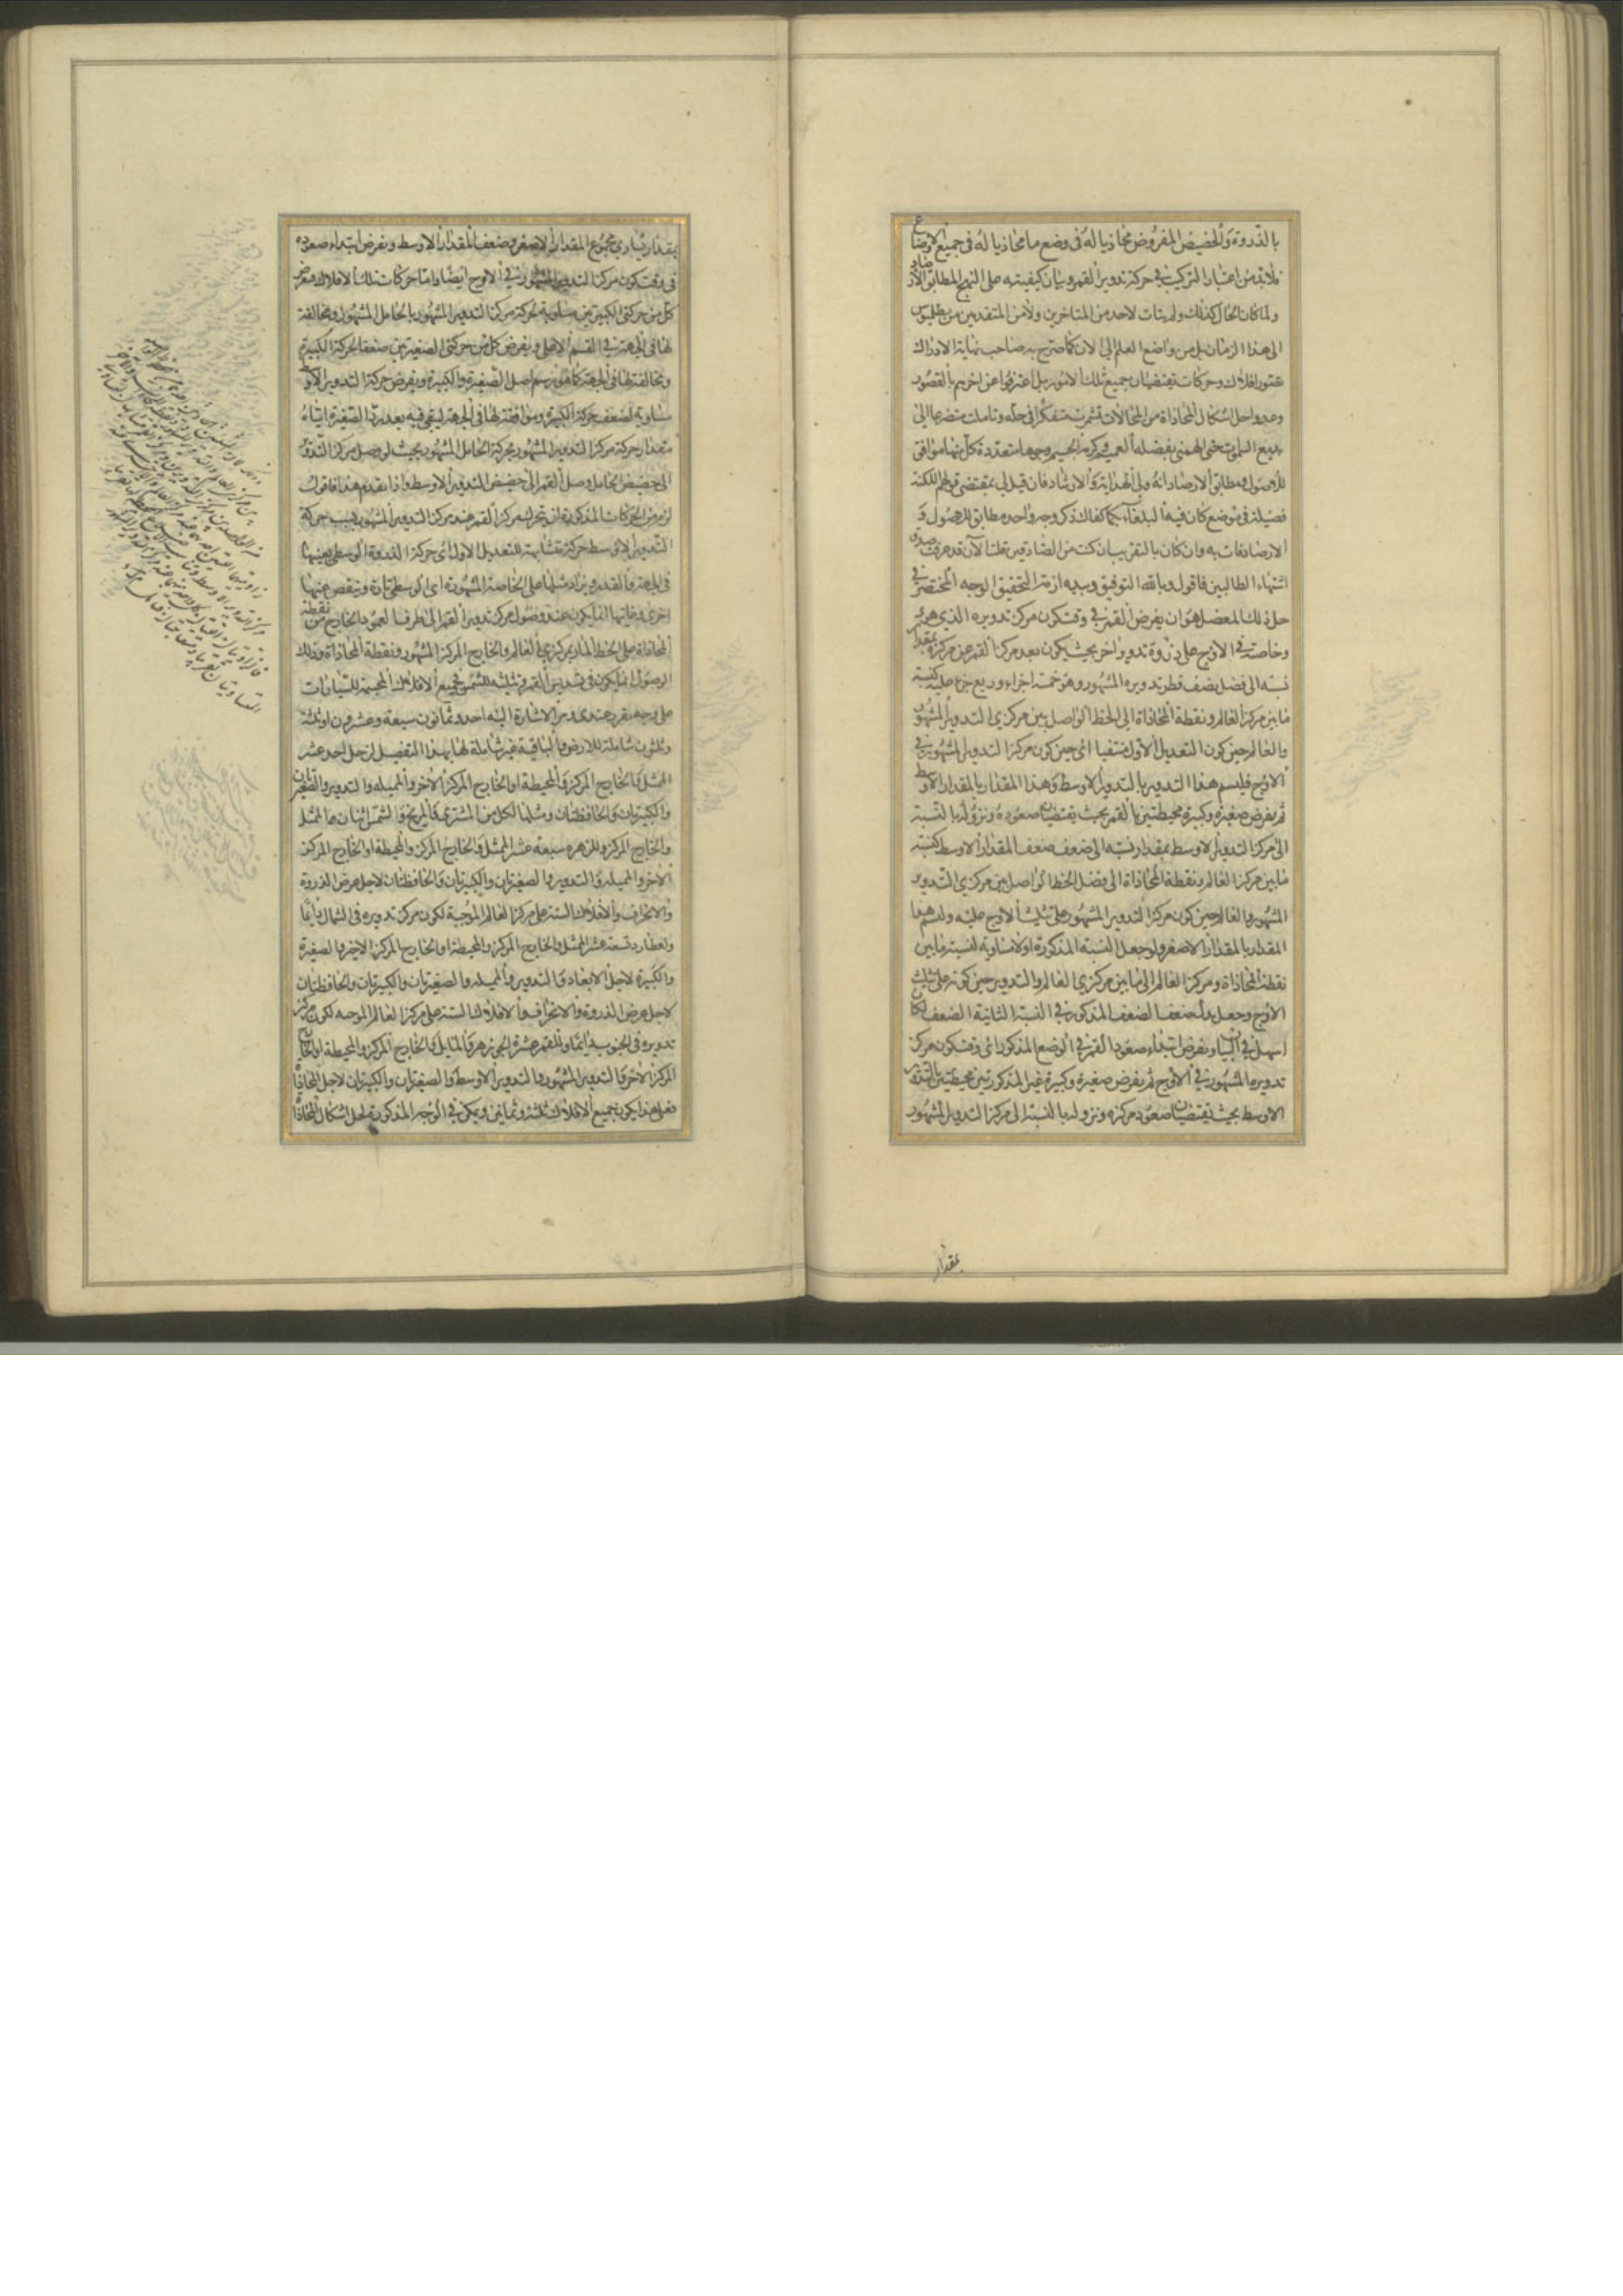 بالذروة والحضيض المفروض محاذيا له فى وضع ما محاذيا له فى جميع الاوضاع
فلابد من اعتبار التركيب فى حركة تدوير القمر وبيان كيفيته على النهج المطابق للارصاد
ولما كان الحال كذلك ولم يتات لاحد من المتاخرين ولا من المتقدمين من بطليموس
الى هذا الزمان بل من واضع العلم الى الان كما صرح به صاحب نهاية الادراك
عثور افلاك وحركات تقتضيان جميع تلك الامور بل اعترفوا عن اخرهم بالقصور
وعدوا حل اشكال المحاذاة من المحالات تشمرت متفكرا فى حله وتاملت متضرعا الى
بديع السموات حتى الهمنى بفضله العميم وكرمه الجسيم وجوها متعددة كل منها موافق
للاصول ومطابق الارصاد انه ولى الهداية والارشاد فان قيل لى بمقتضى قولهم للكنة
فضيلة فى موضع كان فيه البلغاء بكما كفاك ذكر وجه واحد مطابق للاصول و
الارصاد فات به وان كان بالتقريب ان كنت من الصادقين قلنا الان قد عرفت صدق
اشتهاء الطالبين فاقول وبالله التوفيق وبيده ازمة التحقيق الوجه المختصر فى
حل ذلك المعضل هو ان يفرض القمر فى وقت كون مركز تدويره الذى هو
وخاصته فى الاوج على ذروة تدوير اخر بحيث يكون بعد مركز القمر عن مركزه بمقدار
نسبته الى فضل نصف قطر تدويره المشهور وهو خمسة اجزاء وربع جزء عليه كنسبة
ما بين مركز العالم ونقطة المحاذاة الى الخط الواصل بين مركزى التدوير المشهور
والعالم حين كون التعديل الاول منتفيا اى حين كون مركز التدوير المشهور فى
الاوج فليسم هذا التدوير بالتدوير الاوسط وهذا المقدار بالمقدار الاوسط
ثم يفرض صغيرة وكبيرة محيطتين بالقمر بحيث يقتضيان صعوده ونزوله بالنسبة
الى مركز التدوير الاوسط بمقدار نسبته الى ضعف ضعف المقدار الاوسط كنسبة
ما بين مركز العالم ونقطة المحاذاة الى فضل الخط الواصل بين مركزى التدوير
المشهور والعالم حين كون مركز التدوير المشهور على تثليث الاوج عليه ولنسم هذا
المقدار بالمقدار الاصغر ولو جعل النسبة المذكورة اولا مساوية لنسبة ما بين
نقطة المحاذاة ومركز العالم الى ما بين مركزى العالم والتدوير حين كونه على تثليث
الاوج وجعل بدل ضعف الضعف المذكور فى النسبة الثانية الضعف لكان
اسهل فى البيان ونفرض ابتداء صعود القمر فى الوضع المذكور اى وقت كون مركز
تدويره المشهور فى الاوج ثم يفرض صغيرة وكبيرة غير المذكورتين محيطتين بالتدوير
الاوسط بحيث يقتضيان صعود مركزه ونزوله بالنسبة الى مركز التدوير المشهور
بمقدار
بمقدار يساوى مجموع المقدار الاصغر وضعف المقدار الاوسط ونفرض ابتداء صعوده
فى وقت كون مركز التدوير المشهور فى الاوج ايضا واما حركات تلك الافلاك فنفرض
كل من حركتى الكبيرتين مساوية لحركة مركز التدوير المشهور بالحامل المشهور ومخالفة
لها فى الجهة فى القسم الاعلى ويفرض كل من حركتى الصغيرتين ضعف الحركة الكبيرة
ومخالفة لها فى الجهة كما هو رسم اصل الصغيرة والكبيرة ويفرض حركة التدوير الاوسط
مساوية لضعف حركة الكبيرة وموافقة لها فى الجهة ليبقى فيه بعد رد الصغيرة اياه
مقدار حركة مركز التدوير المشهور بحركة الحامل المشهور بحيث لو وصل مركز التدوير
الى حضيض الحامل وصل القمر الى حضيض التدوير الاوسط واذا تقدم هذا فاقول
لزم من الحركات المذكورة ان تحرك مركز القمر عند مركز التدوير المشهور بسبب حركة
التدوير الاوسط حركة متشابهة للتعديل الاول اى حركة الذروة الوسطى بعينها
فى الجهة والقدر ويزاد مثلها على الخاصة المشهودة اى الوسطى تارة وينقص عنها
اخرى وغايتها انما يكون عند وصول مركز تدوير القمر الى طرف العمود الخارج من نقطة
المحاذاة على الخط المار بمركزى العالم والخارج المركز المشهور ونقطة المحاذاة وذلك
الوصول انما يكون فى تسديس القمر وتثليثه للشمس فجميع الافلاك المجسمة للسيارات
على وجه تقرر عندى ومر الاشارة اليه احد وثمانون سبعة وعشرون او ثلثة
وثلثون شاملة للارض والباقية غير شاملة لها بهذا التفصيل لزحل احد عشر
الممثل والخارج المركز والمحيطة او الخارج المركز الاخر والمميله والتدوير والصغيرتان
والكبيرتان والحافظتان ومثلها لكل من المشترى والمريخ والشمس اثنان هما الممثل
والخارج المركز وللزهره سبعة عشر الممثل والخارج المركز والمحيطة او الخارج المركز
الاخر والمميله والتدوير والصغيرتان والكبيرتان والحافظتان لاجل عرض الذروة
والانحراف والافلاك الستة على مركز العالم الموجبة لكون مركز تدويره فى الشمال دايما
ولعطارد تسعة عشر الممثل والخارج المركز والمحيطة او الخارج المركز الاخير والصغيرة
والكبيرة لاجل الابعاد والتدوير والمميله والصغيرتان والكبيرتان والحافظتان
لاجل عرض الذروة والانحراف والافلاك الستة على مركز العالم الموجبه لكون مركز
تدويره فى الجنوب دايما وللقمر عشرة الجوزهر والمايل والخارج المركز والمحيطة او الخارج
المركز الاخر والتدوير المشهور والتدوير الاوسط والصغيرتان والكبيرتان لاجل المحاذاة
فعلى هذا يكون جميع الافلاك ثلثة وثمانين ويمكن فى الوجه المذكور لحل اشكال المحاذاة